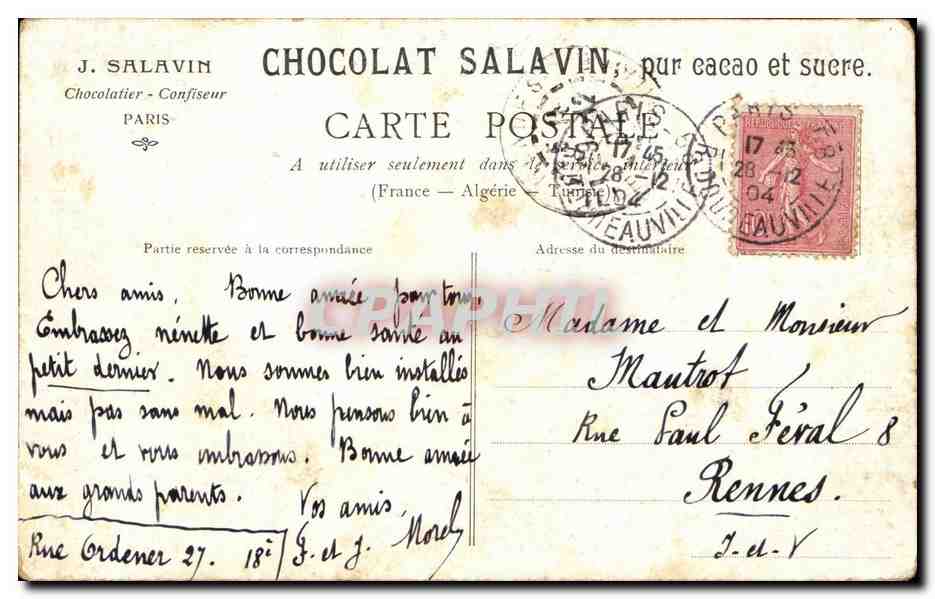 J. SALAVIN
Chocolatier - Confiseur
PARIS
CHOCOLAT SALAVIN, pur cacao et sucre.
CARTE POSTALE
A utiliser seulement dans le service intérieur
(France — Algérie — Tunisie)
PARIS
17 45
28 - 12
04
DOUDEAUVILLE
PARIS
17 45
28 - 12
04
DOUDEAUVILLE
Partie reservée à la correspondance
Chers amis, Bonne année pour tous,
Embrassez nénette et bonne santé au
petit dernier. Nous sommes bien installés
mais pas sans mal. Nous pensons bien à
vous et vous embrassons. Bonne année
aux grands parents.
Vos amis,
F. et J. Morel
Rue Ordener 27. 18i
Adresse du destinataire
Madame et Monsieur
Mautrot
Rue Paul Féval 8
Rennes.
I-et-V
CPAPHIL